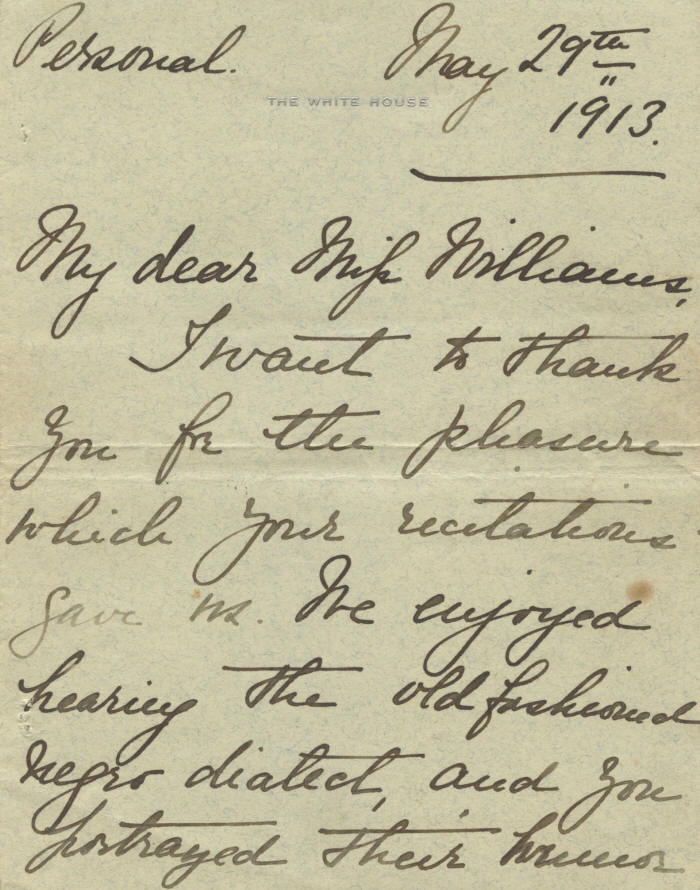 Personal.
May 29th
THE WHITE HOUSE
1913.
My dear Miss Williams,
I want to thank
you for the pleasure
which your recitations
gave us. We enjoyed
hearing the old fashioned
negro dialect, and you
portrayed their humor